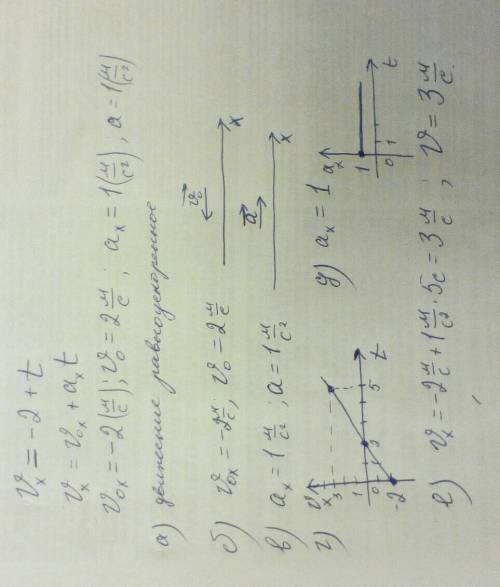 vₓ = -2 + t
vₓ = v₀ₓ + aₓt
v₀ₓ = -2 (м/с); v₀ = 2 м/с; aₓ = 1 (м/с²), a = 1 (м/с²)
а) движение равноускоренное
б) v₀ₓ = -2 м/с; v₀ = 2 м/с v⃗₀ x
в) aₓ = 1 м/с²; a = 1 м/с² a⃗ x
г) vₓ 3 1 0 -2 2 5 t д) aₓ = 1 aₓ 1 0 1 t
е) vₓ = -2 м/с + 1 м/с² · 5с = 3 м/с; v = 3 м/с.